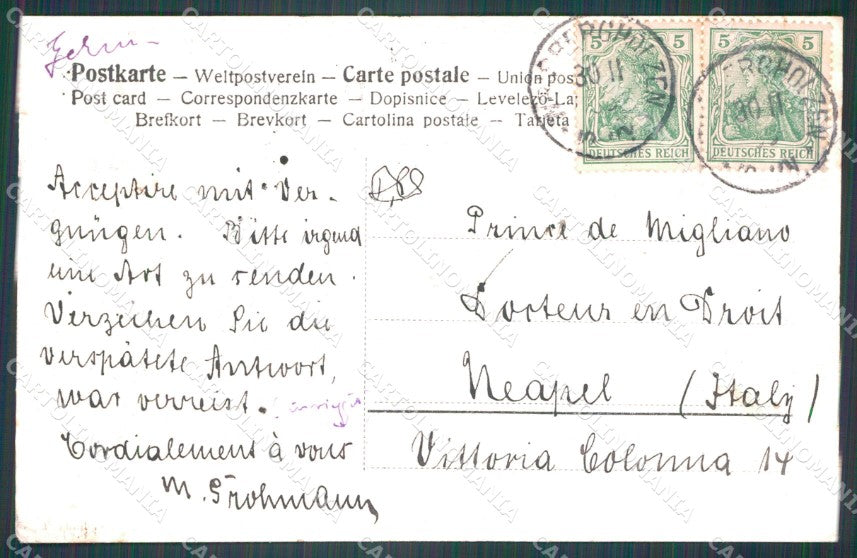 Postkarte – Weltpostverein – Carte postale – Union pos
Post card – Correspondenzkarte – Dopisnice – Levelező-La
Brefkort – Brevkort – Cartolina postale – Tarjeta
5 5 5 5
DEUTSCHES REICH DEUTSCHES REICH
BERGHOLZEN
30 11
ERGHOLZEN
30 11
Acceptire mit Ver-
gnügen. Bitte irgend
eine Art zu senden.
Verzeihen Sie die
verspätete Antwort,
war verreist.
Cordialement à vous
M. Frohmann
Prince de Migliano
Docteur en Droit
Neapel (Italy)
Vittoria Colonna 14
CARTOLINOMANIA